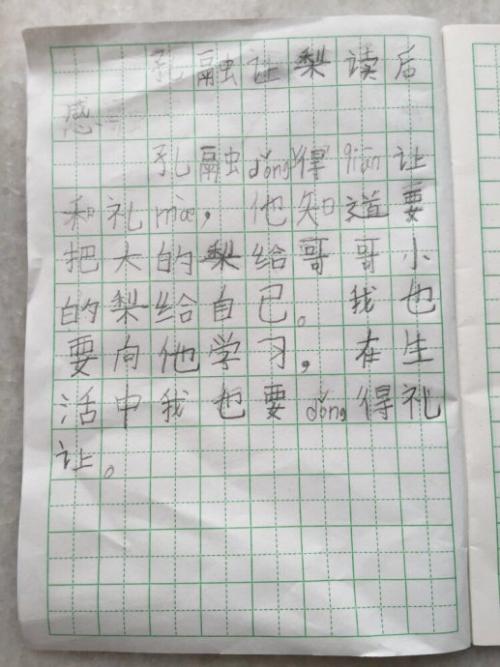 孔融让梨读后
感
孔融dǒng得qiān让
和礼mào，他知道要
把大的梨给哥哥小
的梨给自己。我也
要向他学习，在生
活中我也要dǒng得礼
让。